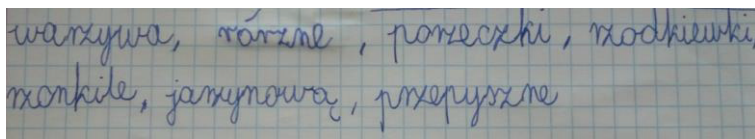 warzywa, rórzne, porzeczki, rzodkiewki,
rzonkile, jarzynową, przepyszne